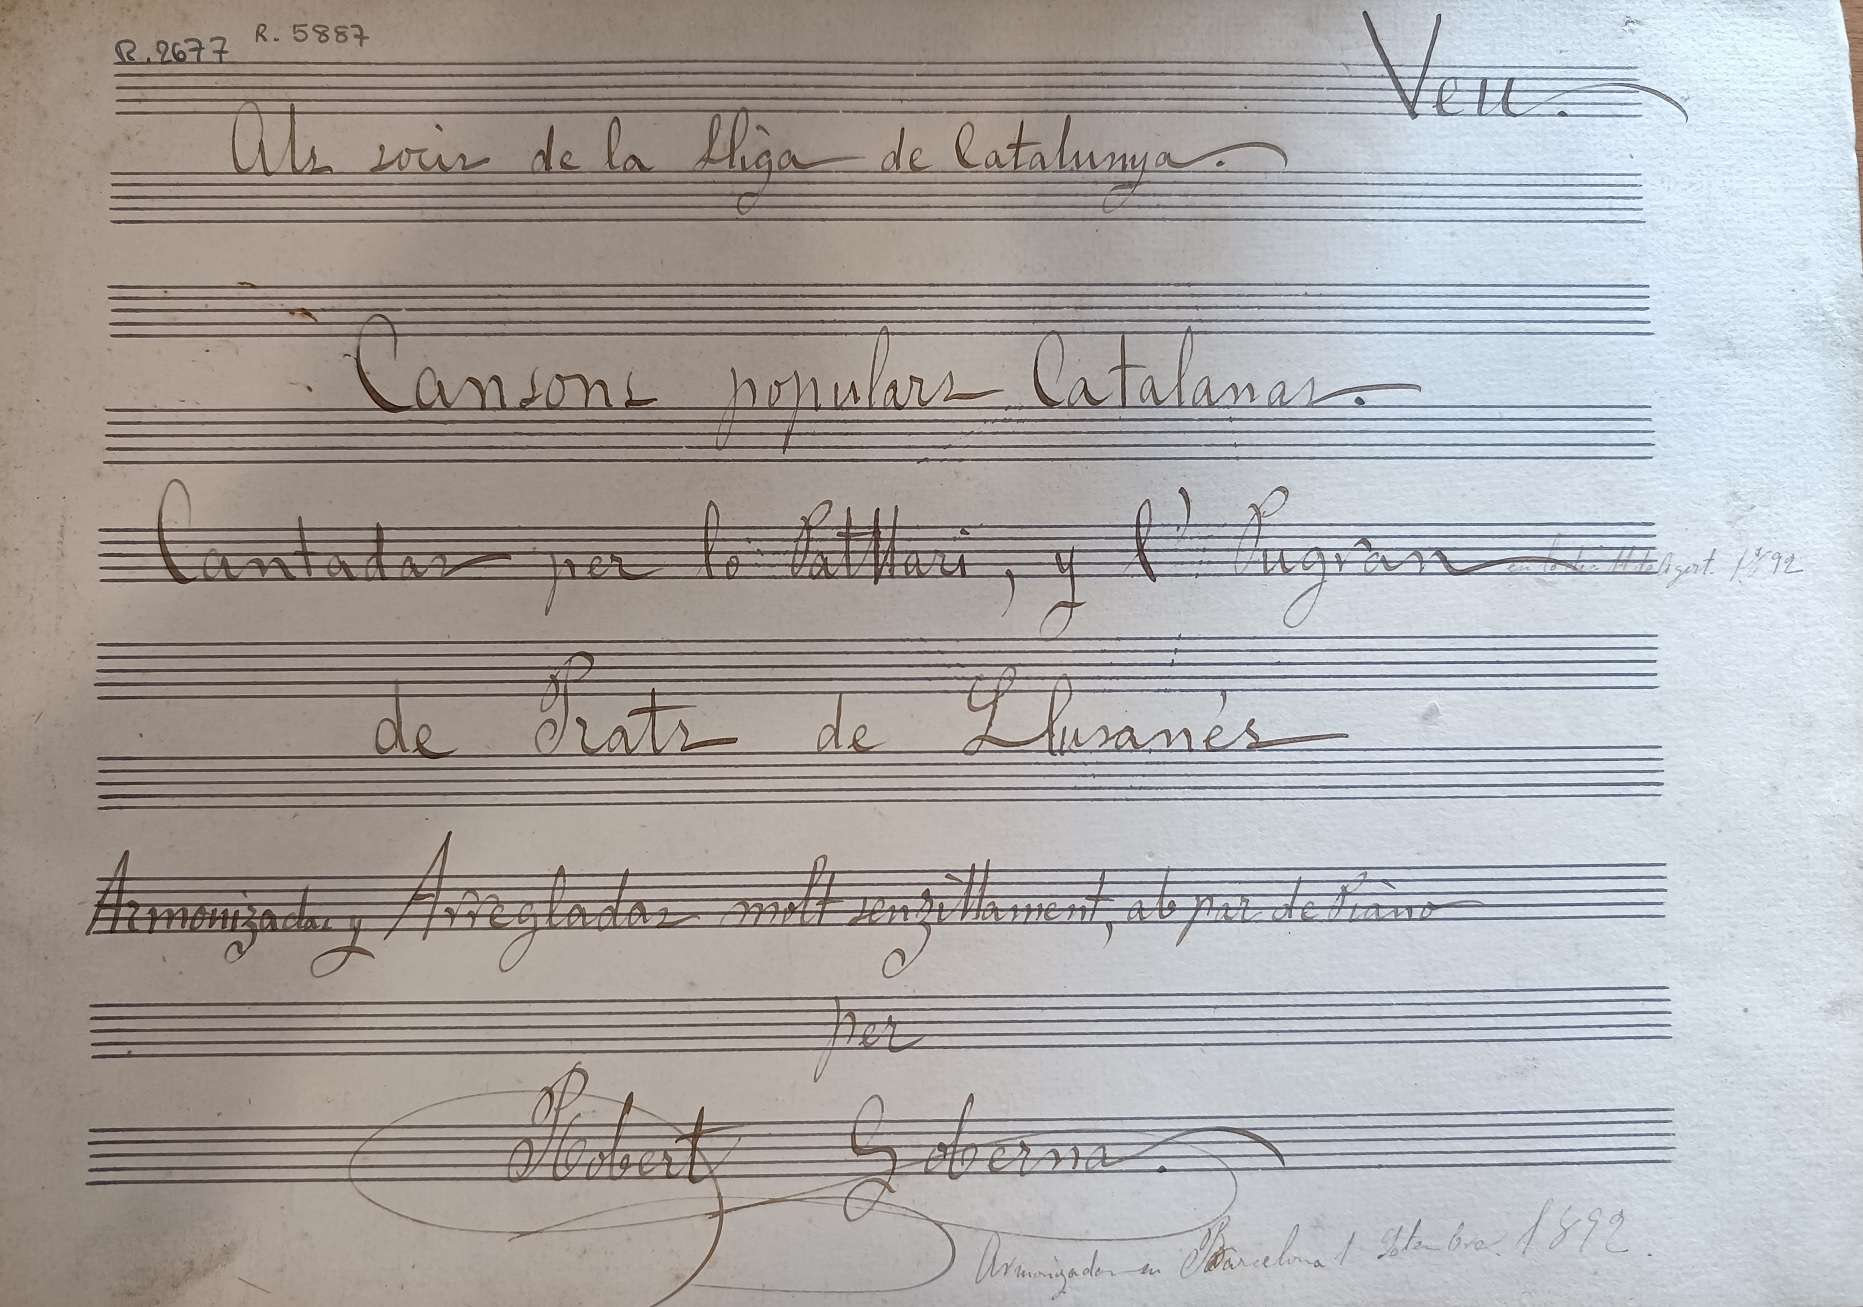 R. 2677 R. 5887
Veu.
Als socis de la Lliga de Catalunya.
Cansons populars Catalanas.
Cantadas per lo Pathari, y l' Pugran
1892
de Prats de Llusanés
Armonizadas y Arregladas molt senzillament, ab par de Piano
per
Robert Goberna.
Armonizadas en Barcelona 1 Setembre 1892.